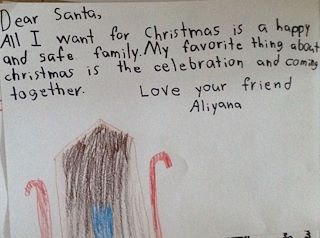 Dear Santa,
All I want for Christmas is a happy
and safe family. My favorite thing about
christmas is the celebration and coming
together. Love your friend
Aliyana